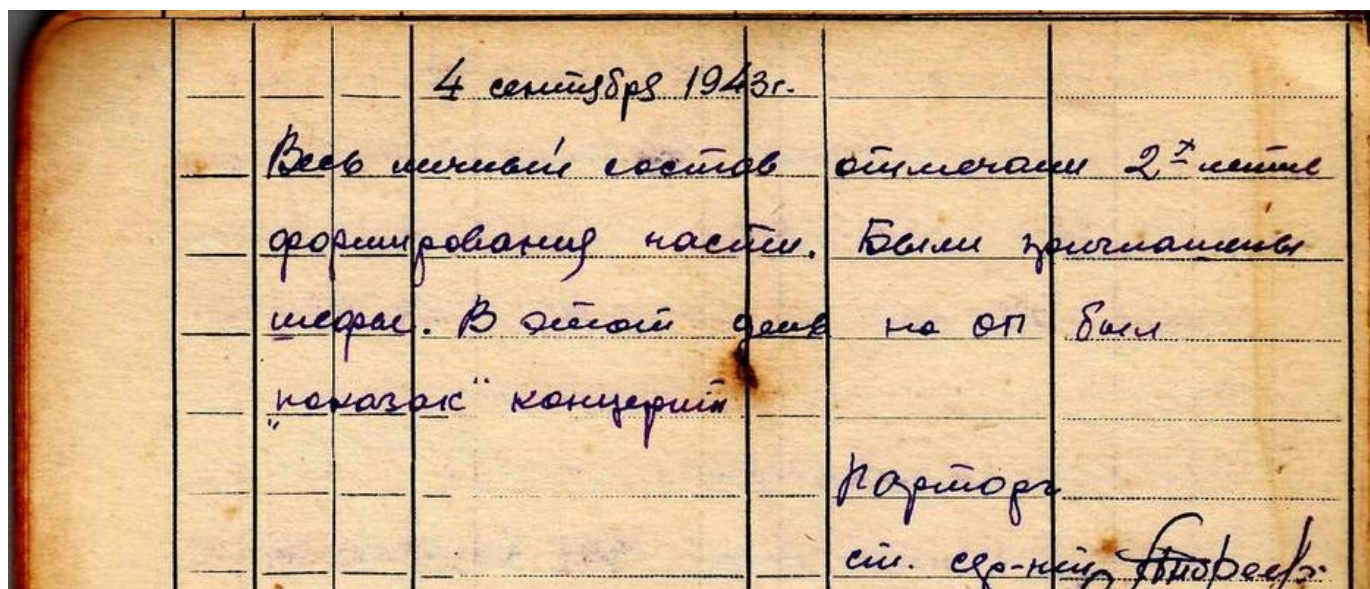 4 сентября 1943г.
Весь личный состав отмечали 2х летие
формирования части. Были приглашены
шефы. В этот день на ОП был
„показан“ концерт
Парторг
ст. сер-нт